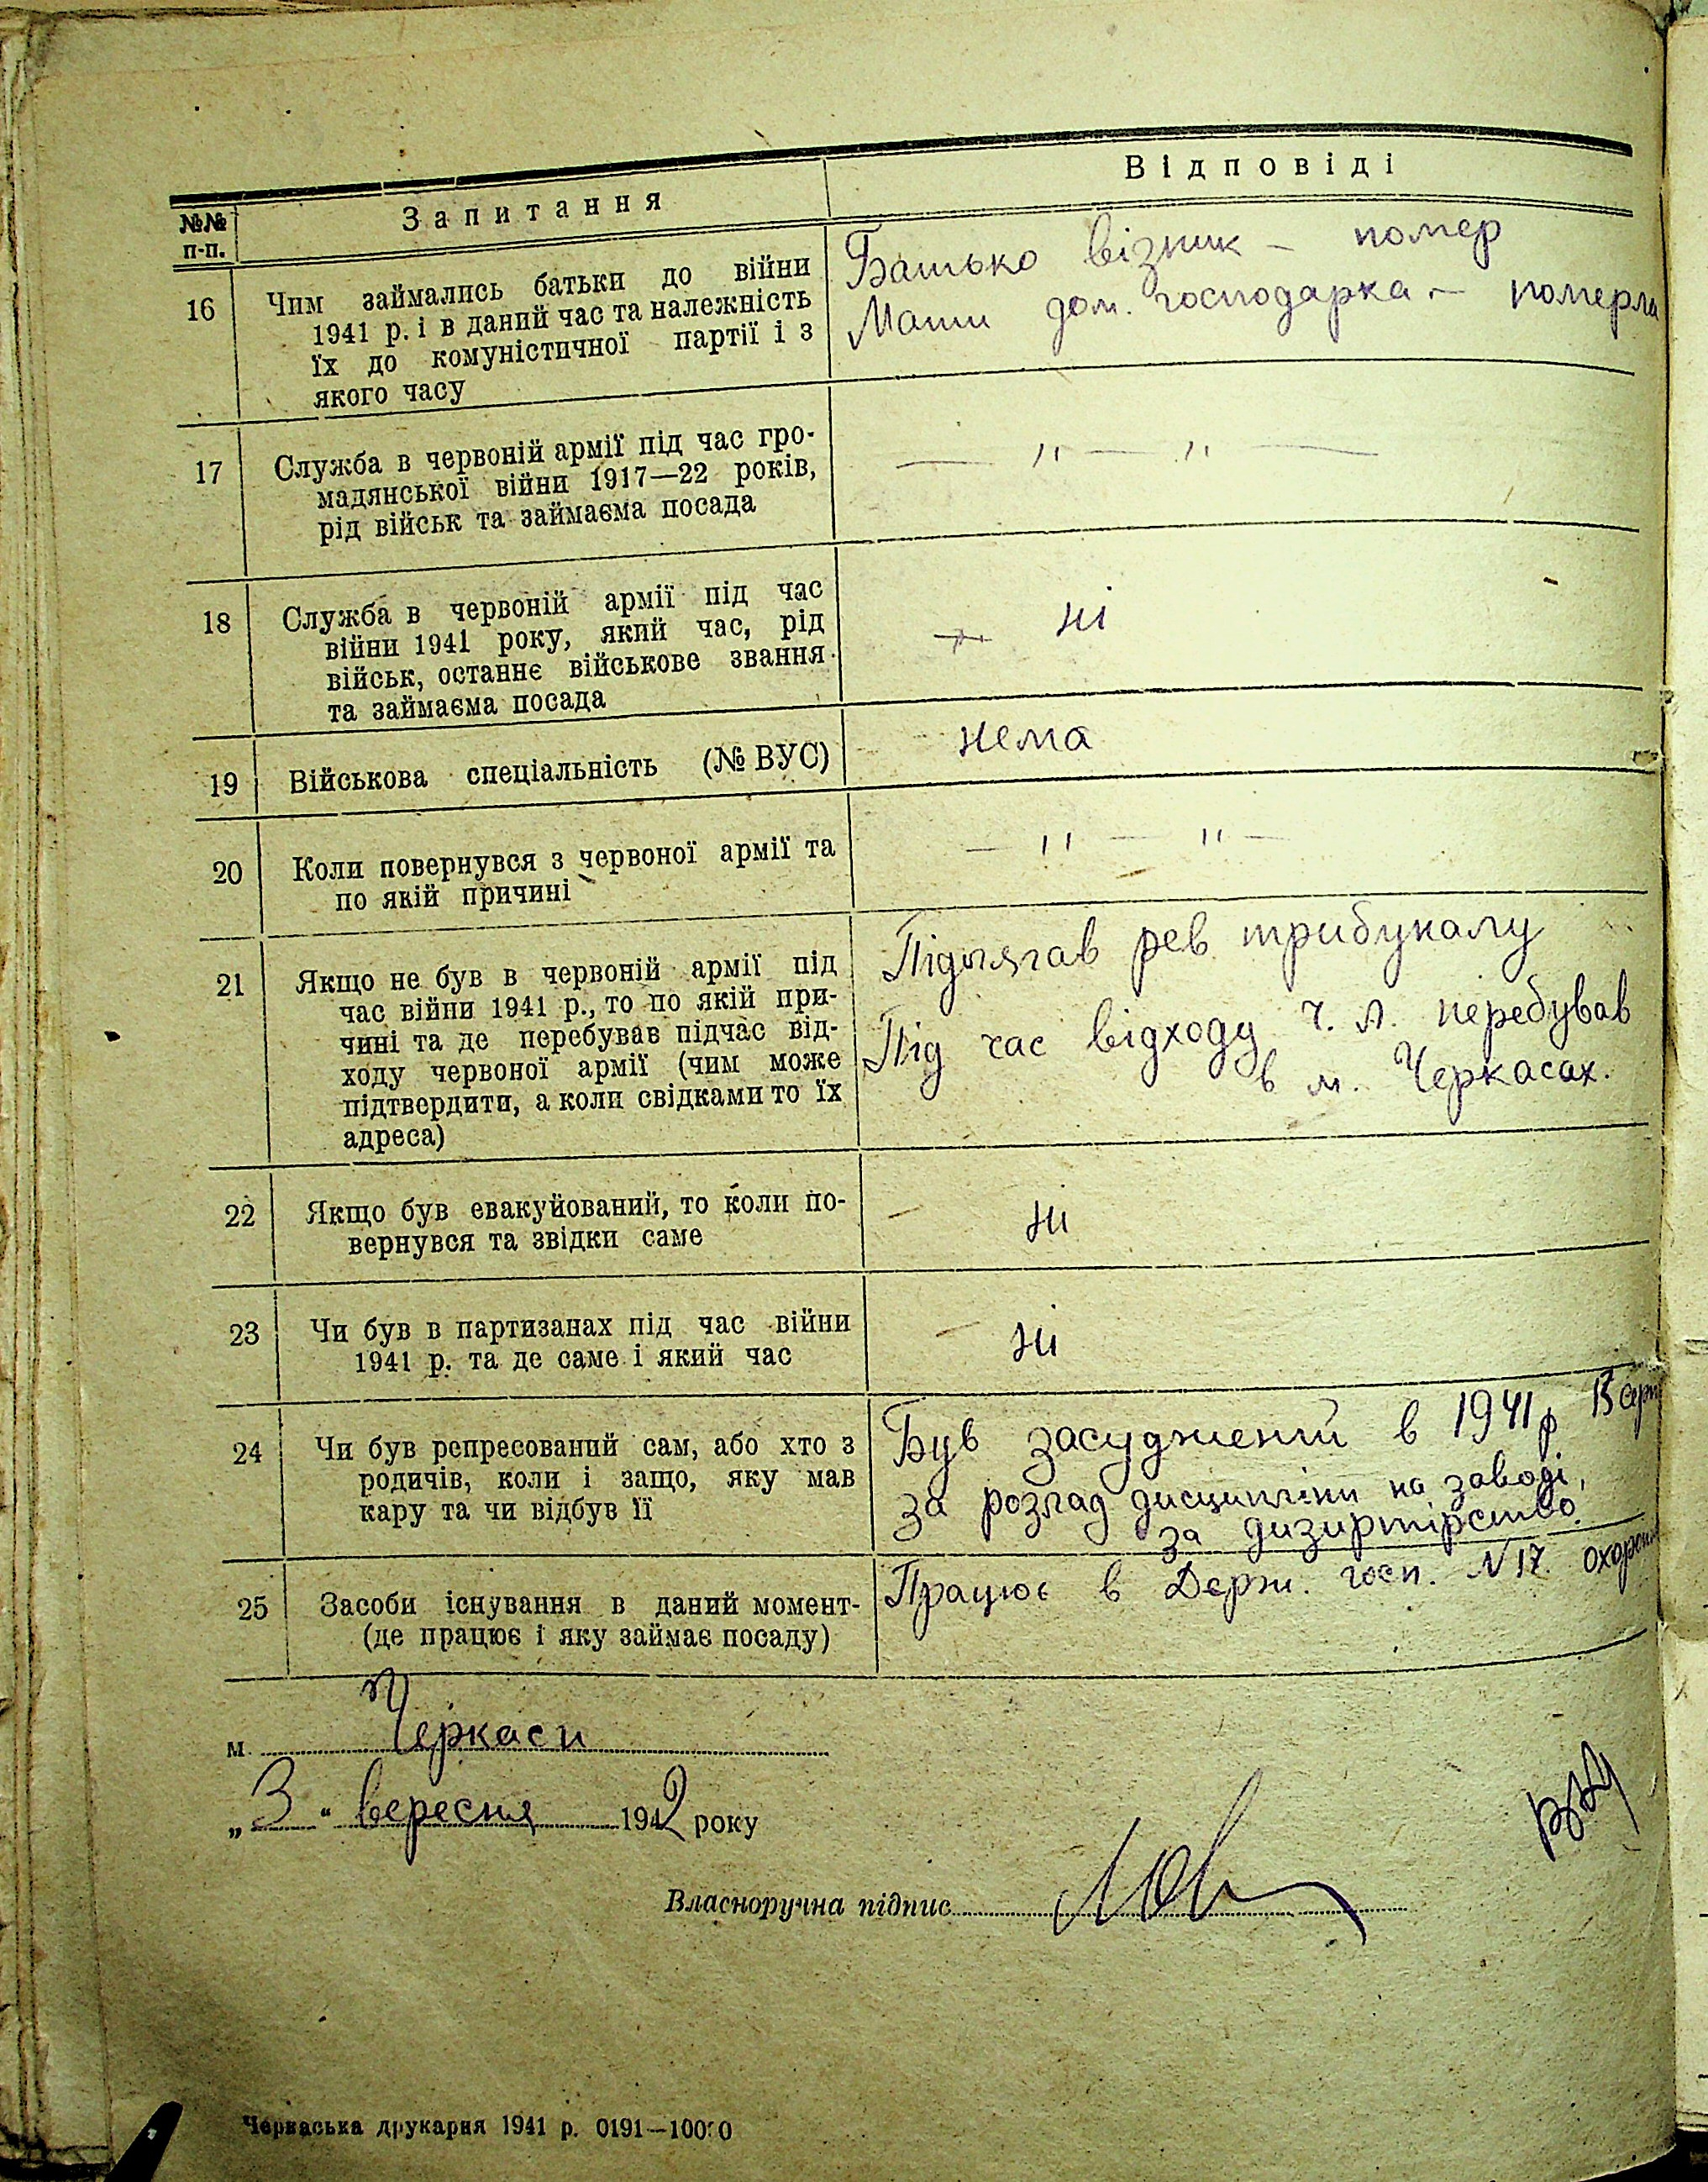 №№ п-п.
Запитання
Відповіді
16
Чим займались батьки до війни
1941 р. і в даний час та належність
їх до комуністичної партії і з
якого часу
Батько візник – помер
Мати дом. господарка – померла
17
Служба в червоній армії під час гро-
мадянської війни 1917—22 років,
рід військ та займаєма посада
— " — " —
18
Служба в червоній армії під час
війни 1941 року, який час, рід
військ, останнє військове звання
та займаєма посада
ні
19
Військова спеціальність (№ ВУС)
нема
20
Коли повернувся з червоної армії та
по якій причині
— " — " —
21
Якщо не був в червоній армії під
час війни 1941 р., то по якій при-
чині та де перебував підчас від-
ходу червоної армії (чим може
підтвердити, а коли свідками то їх
адреса)
Підлягав рев. трибуналу
Під час відходу ч. А. перебував
в м. Черкасах.
22
Якщо був евакуйований, то коли по-
вернувся та звідки саме
– ні
23
Чи був в партизанах під час війни
1941 р. та де саме і який час
– ні
24
Чи був репресований сам, або хто з
родичів, коли і защо, яку мав
кару та чи відбув її
Був засуджений в 1941 р
за розлад дисципліни на заводі,
за дизиртірство.
25
Засоби існування в даний момент-
(де працює і яку займає посаду)
Працює в Держ. госп. N 17.
м. Черкаси
„3" вересня 1942 року
Власноручна підпис
Черкаська друкарня 1941 р. 0191—10000